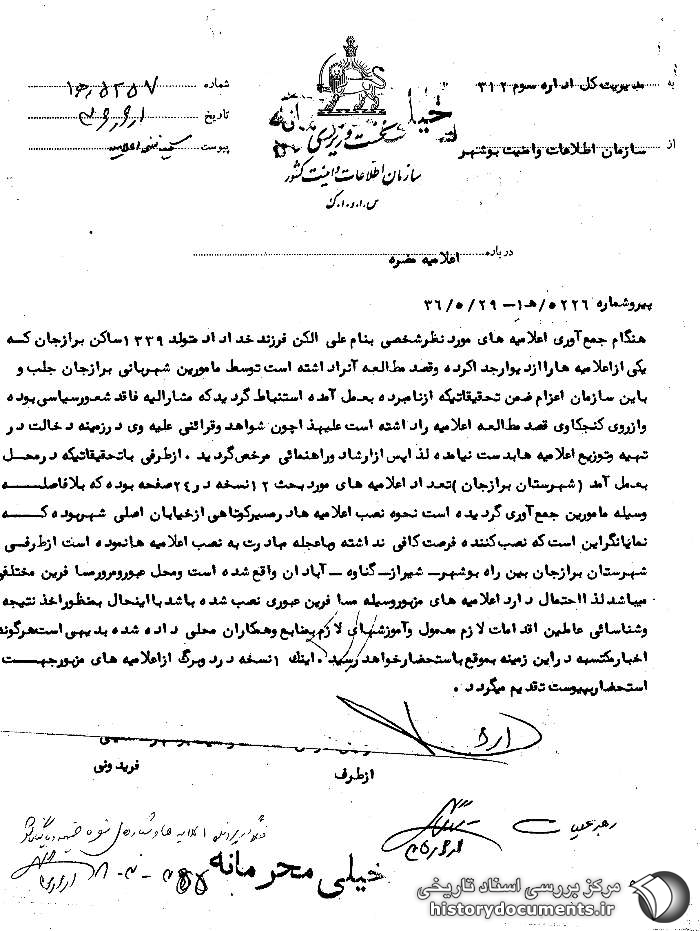 به مدیریت کل اداره سوم ۳۱۲
شماره
تاریخ
از سازمان اطلاعات و امنیت بوشهر
پیوست
خیلی محرمانه
نخست وزیری
سازمان اطلاعات و امنیت کشور
س.ا.و.ا.ک
درباره اعلامیه مضره
پیرو شماره ۵۲۲۶/هـ۱ - ۳۶/۵/۲۹
هنگام جمع آوری اعلامیه های مورد نظر شخصی بنام علی الکن فرزند خداداد متولد ۱۳۳۹ ساکن برازجان که
یکی از اعلامیه ها را از دیوار جدا کرده و قصد مطالعه آنرا داشته است توسط مامورین شهربانی برازجان جلب و
باین سازمان اعزام ضمن تحقیقاتیکه از نامبرده بعمل آمده استنباط گردید که مشارالیه فاقد شعور سیاسی بوده
و از روی کنجکاوی قصد مطالعه اعلامیه را داشته است علیهذا چون شواهد و قرائنی علیه وی در زمینه دخالت در
تهیه و توزیع اعلامیه ها بدست نیامده لذا پس از ارشاد و راهنمائی مرخص گردید . از طرفی با تحقیقاتیکه در محل
بعمل آمد (شهرستان برازجان) تعداد اعلامیه های مورد بحث ۱۲ نسخه در ۲۴ صفحه بوده که بلافاصله
وسیله مامورین جمع آوری گردیده است نحوه نصب اعلامیه ها در مسیر کوتاهی از خیابان اصلی شهر بوده که
نمایانگر این است که نصب کننده فرصت کافی نداشته و با عجله مبادرت به نصب اعلامیه ها نموده است از طرفی
شهرستان برازجان بین راه بوشهر - شیراز - گناوه - آبادان واقع شده است و محل عبور و مرور مسافرین مختلفی
میباشد لذا احتمال دارد اعلامیه های مزبور وسیله مسافرین عبوری نصب شده باشد با اینحال بمنظور اخذ نتیجه
و شناسائی عاملین اقدامات لازم معمول و آموزشهای لازم بمنابع و همکاران محلی داده شده بدیهی است هرگونه
اخبار مکتسبه در این زمینه بموقع باستحضار خواهد رسید . اینك ۱ نسخه در دو برگ از اعلامیه های مزبور جهت
استحضار بپیوست تقدیم میگردد .
از طرف
فریدونی
رهبر عملیات
خیلی محرمانه
مرکز بررسی اسناد تاریخی
historydocuments.ir